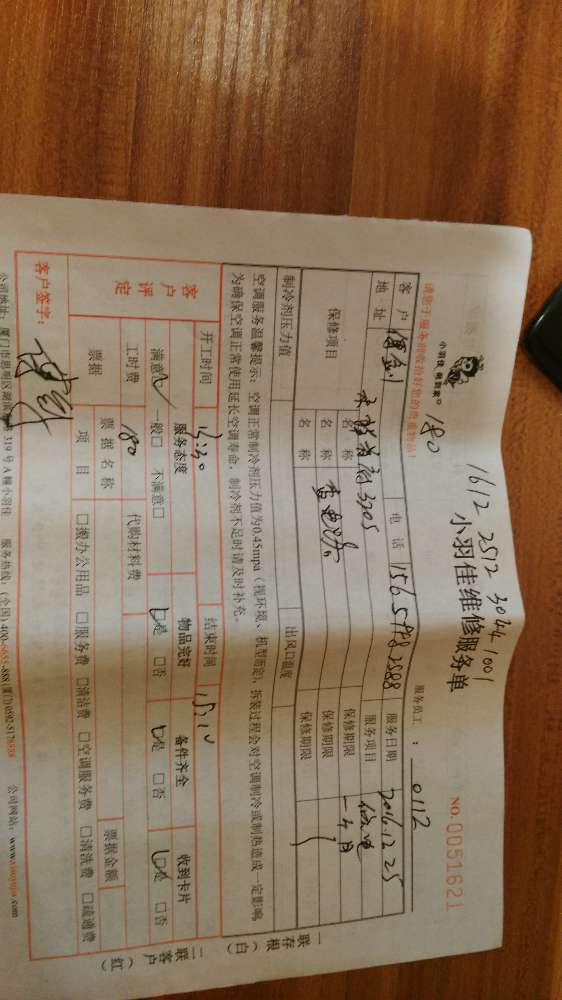 1612 2512 3044 1001
180
小羽佳维修服务单
NO.0051621
请您于服务前收拾好您的贵重物品!
服务员工: 0112
客户 电话 156 5978 2588 服务日期 2016.12.25
地址 3205 服务项目
保修项目 名称 保修期限 一个月
名称 保修期限
名称 保修期限
制冷剂压力值 出风口温度
空调服务温馨提示:空调正常制冷剂压力值为0.45mpa(视环境、机型而定),拆装过程会对空调制冷或制热造成一定影响,
为确保空调正常使用延长空调寿命,制冷剂不足时请及时补充。
客户评定
开工时间 结束时间
服务态度 物品完好 备件齐全 收到卡片
满意☑ 一般□ 不满意□ ☑是 □否 ☑是 □否 ☑是 □否
工时费 180 代购材料费
票据 票据名称 票据金额
项目 □搬办公用品 □服务费 □清洁费 □空调服务费 □清洗费 □疏通费
客户签字:
公司地址:厦门市思明区湖滨 319号A幢小羽佳 服务热线:(全国)400-6655-888(厦门)0592-5178888 公司网站:www.xiaoyujia.com
一联存根(白)
二联客户(红)